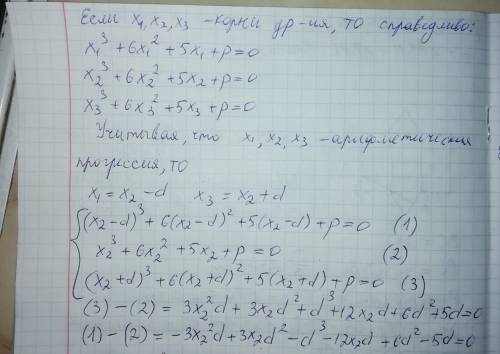 Если x₁, x₂, x₃ – корни ур-ия, то справедливо:
x₁³ + 6x₁² + 5x₁ + p = 0
x₂³ + 6x₂² + 5x₂ + p = 0
x₃³ + 6x₃² + 5x₃ + p = 0
Учитывая, что x₁, x₂, x₃ – арифметическая
прогрессия, то
x₁ = x₂ – d x₃ = x₂ + d
(x₂ – d)³ + 6(x₂ – d)² + 5(x₂ – d) + p = 0 (1)
x₂³ + 6x₂² + 5x₂ + p = 0 (2)
(x₂ + d)³ + 6(x₂ + d)² + 5(x₂ + d) + p = 0 (3)
(3) – (2) = 3x₂²d + 3x₂d² + d³ + 12x₂d + 6d² + 5d = 0
(1) – (2) = –3x₂²d + 3x₂d² – d³ – 12x₂d + 6d² – 5d = 0